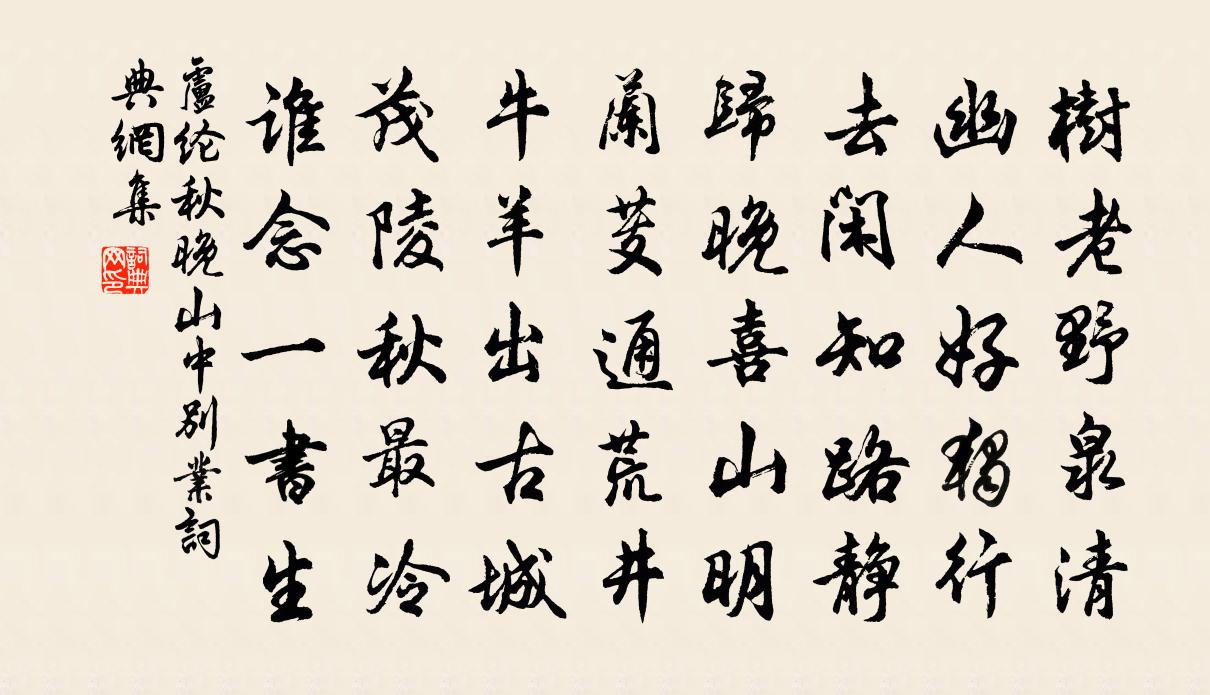 樹老野泉清
幽人好獨行
去閑知路静
歸晚喜山明
蘭芰通荒井
牛羊出古城
茂陵秋最冷
誰念一書生
盧纶秋晚山中別業詞
典網集
詞典網印